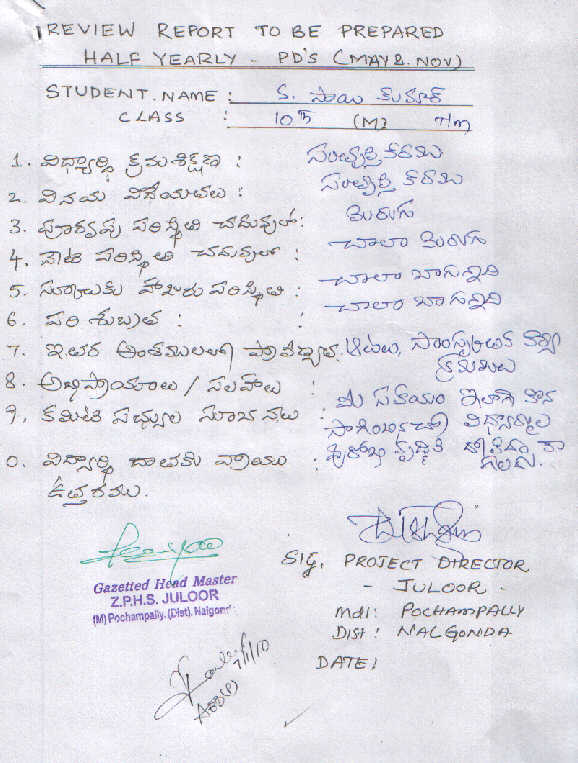 REVIEW REPORT TO BE PREPARED
HALF YEARLY - PD'S (MAY & NOV)
STUDENT. NAME : S. సాయి కుమార్
CLASS : 10th (M) T/m
1. విద్యార్థి క్రమశిక్షణ : సంతృప్తికరము
2. వినయ విధేయతలు : సంతృప్తి కరము
3. పూర్వపు పరిస్థితి చదువులో : మెరుగు
4. పాఠ పరిస్థితి చదువులో : చాలా మెరుగు
5. స్కూలుకు హాజరు పరిస్థితి : చాలా బాగున్నది
6. పరిశుభ్రత : చాలా బాగున్నది
7. ఇతర అంశములలో ప్రావీణ్యత. ఆటలు, సాంస్కృతిక
8. అభిప్రాయాలు / సలహాలు : మీ సహాయం ఇలాగే
9. కమిటి సభ్యుల సూచనలు :
0. విద్యార్థి దాతకు వ్రాయు :
ఉత్తరము.
SIG, PROJECT DIRECTOR
- JULOOR.
Mdl: POCHAMPALLY
DIST: NALGONDA
DATE:
Gazetted Head Master
Z.P.H.S. JULOOR
(M) Pochampally, (Dist). Nalgonda
7/1/10